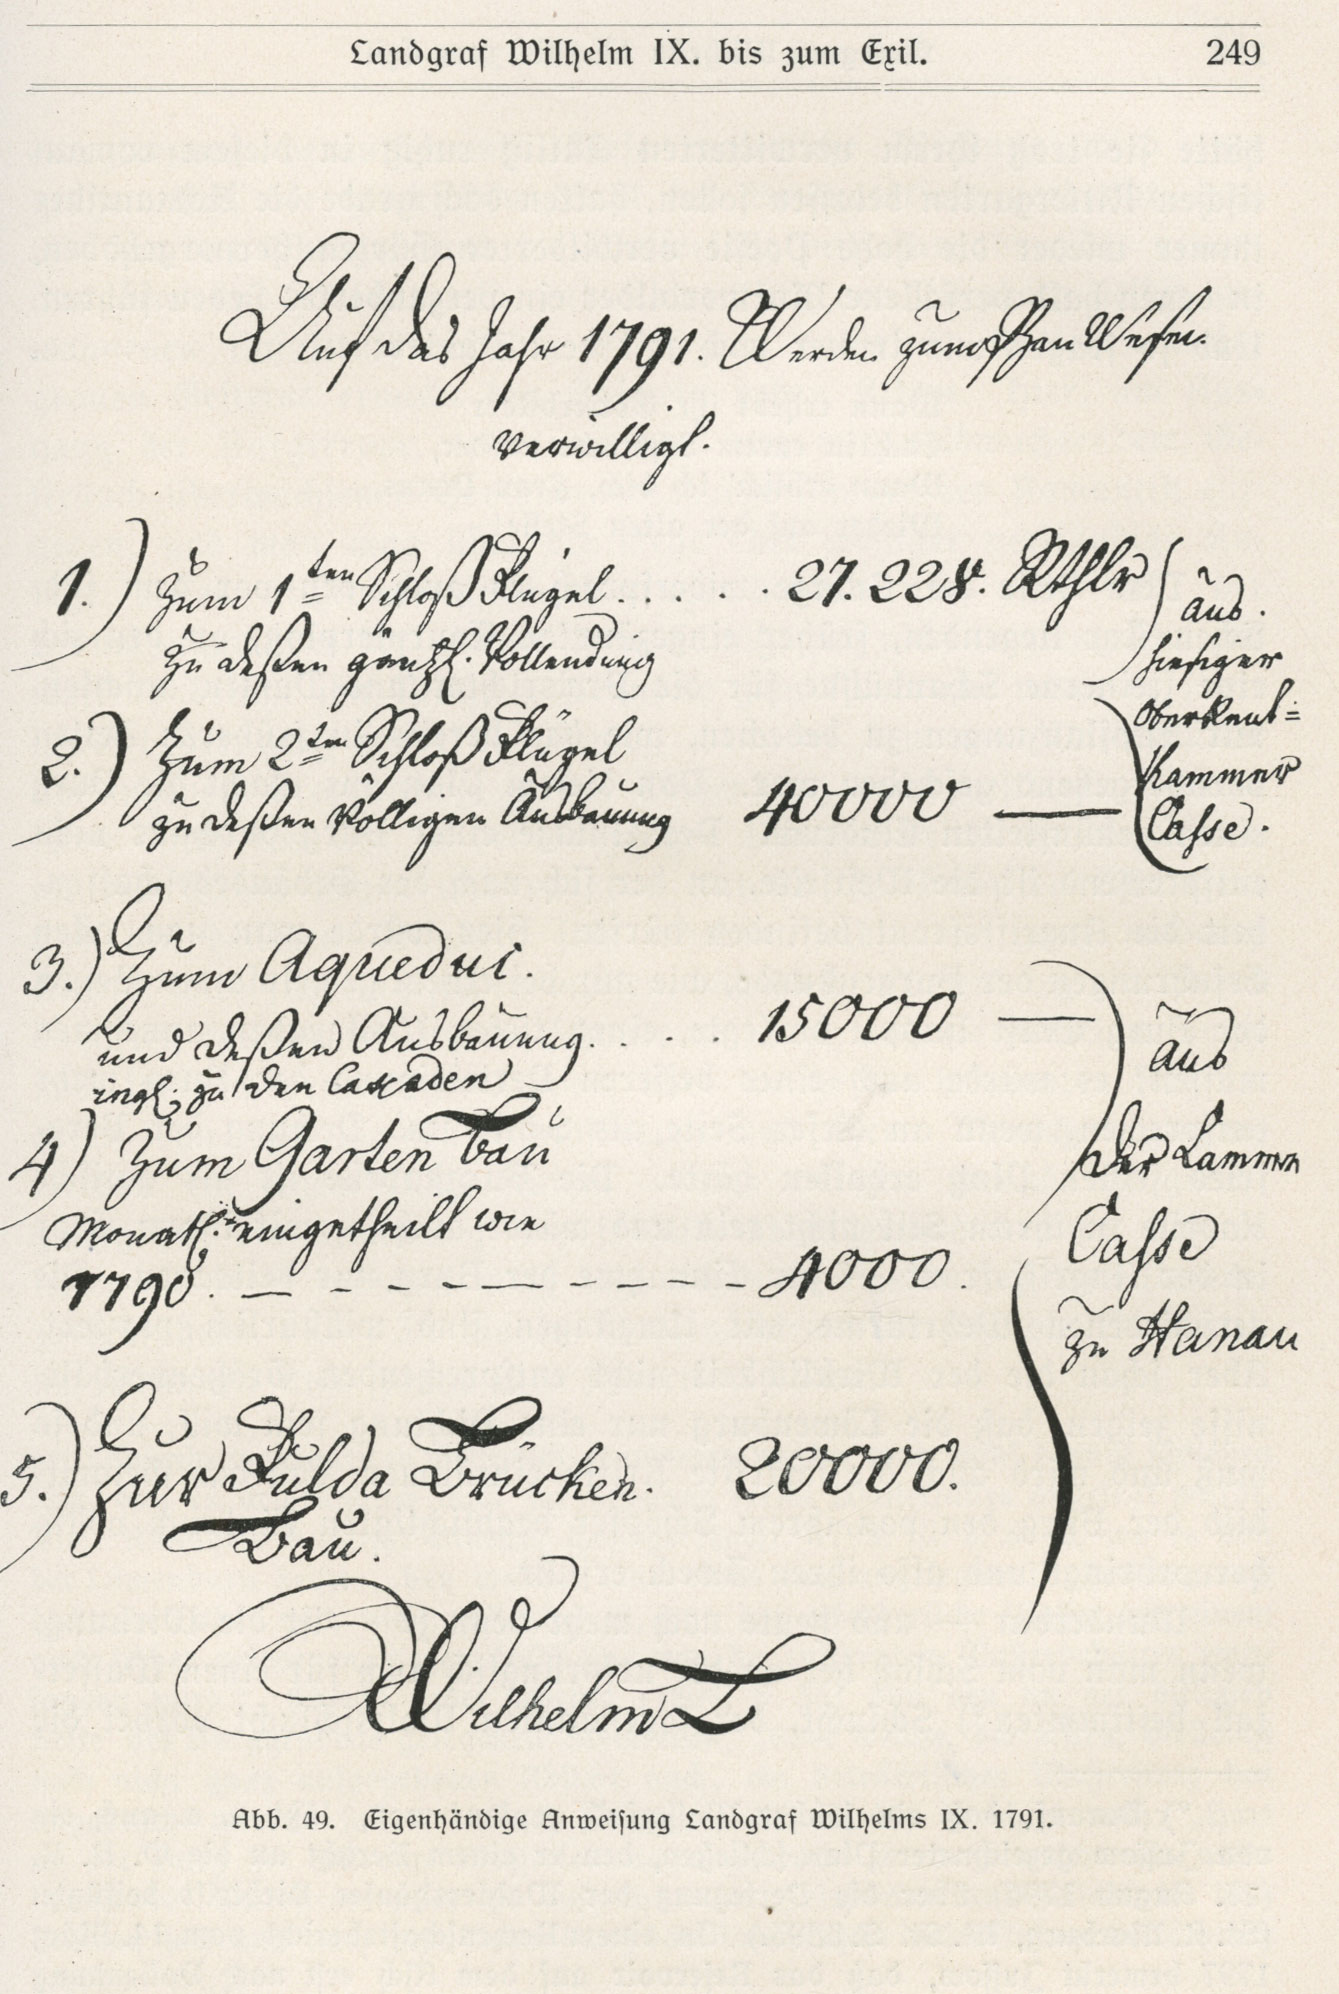 Landgraf Wilhelm IX. bis zum Exil. 249
Auf das Jahr 1791. Werden zum Bau Wesen.
verwilligt.
1.) Zum 1ten Schloß Flügel . . . . . 27.228. Rthlr
zu deßen gäntzl. Vollendung
2.) Zum 2ten Schloß Flügel
zu deßen völligen Ausbauung 40000 —
aus.
hiesiger
OberRent=
Kammer
Casse.
3.) Zum Aqueduc.
und deßen Ausbauung. . . . . 15000 —
ingl. zu den Cascaden
4) Zum Garten Bau
Monatl. eingetheilt wie
1790. — - - - — - - - - - 4000.
5.) Zur Fulda Brücken. 20000.
Bau.
aus
der Cammer
Casse
zu Hanau
Wilhelm L
Abb. 49. Eigenhändige Anweisung Landgraf Wilhelms IX. 1791.